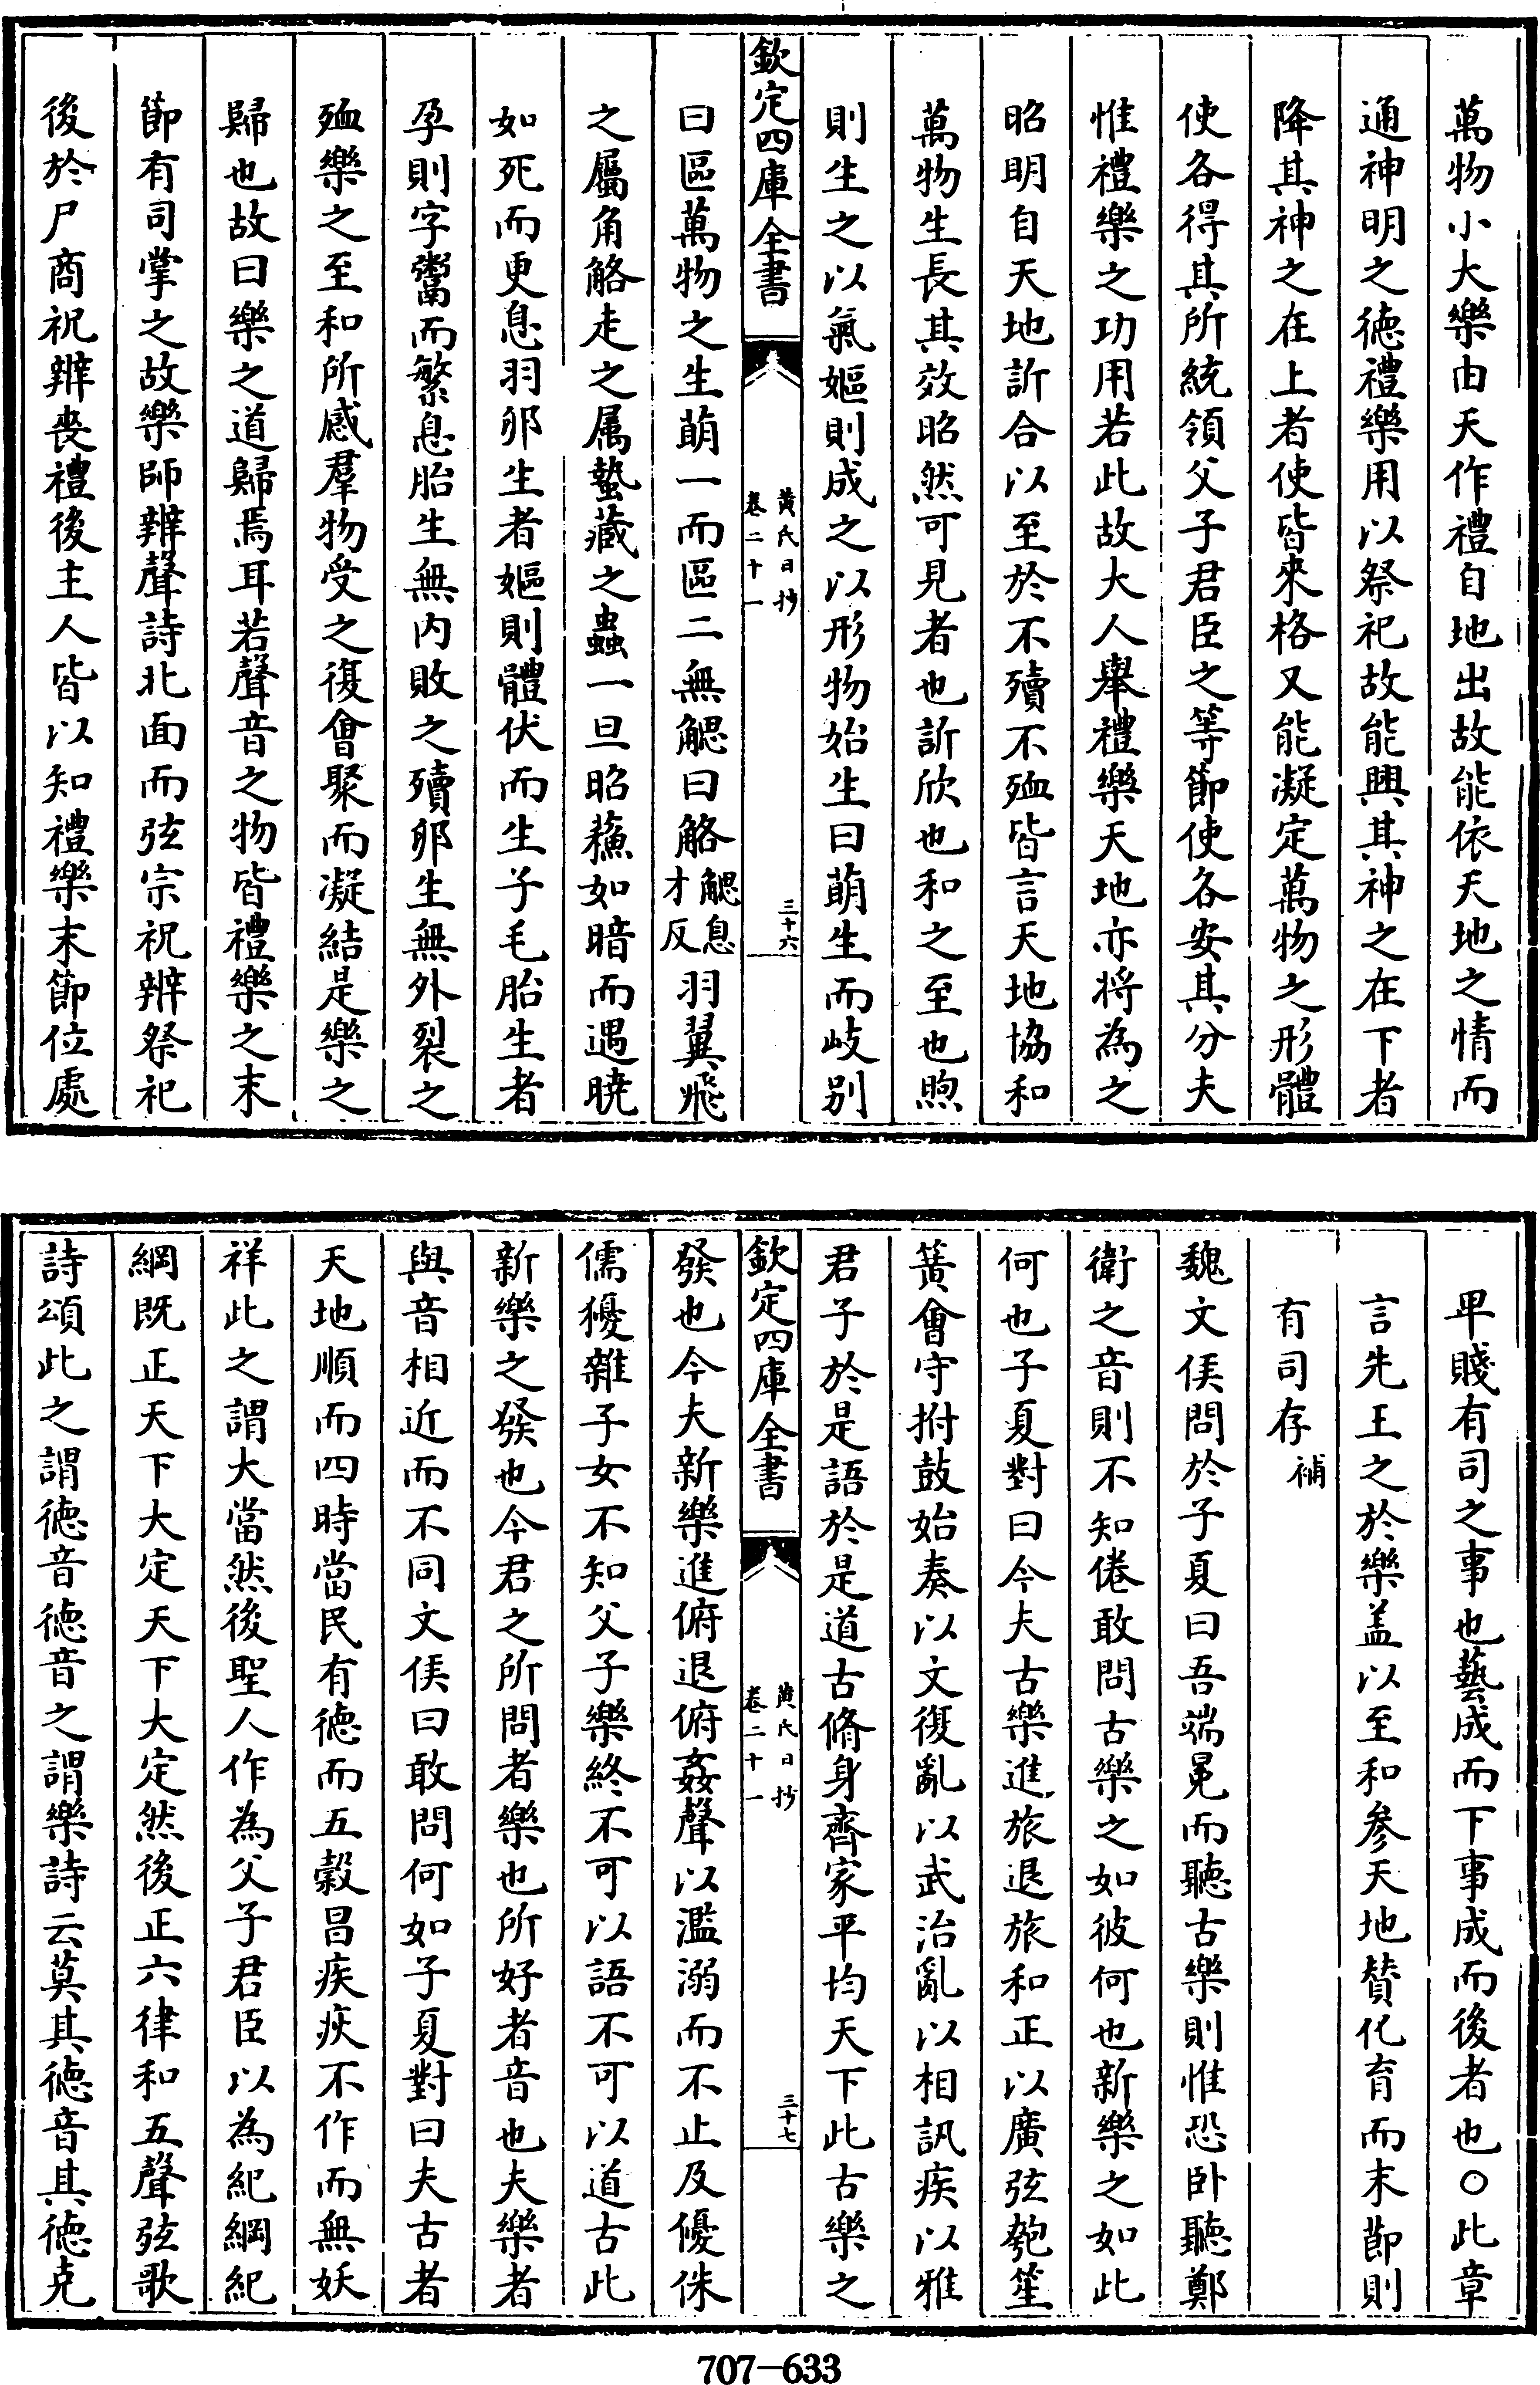 萬物小大樂由天作禮自地出故能依天地之情而
通神明之徳禮樂用以祭祀故能興其神之在下者
降其神之在上者使皆來格又能凝定萬物之形體
使各得其所統領父子君臣之等節使各安其分夫
惟禮樂之功用若此故大人舉禮樂天地亦將為之
昭明自天地訢合以至於不殰不殈皆言天地協和
萬物生長其效昭然可見者也訢欣也和之至也煦
則生之以氣嫗則成之以形物始生曰萌生而岐别
欽定四庫全書
黄氏日抄
卷二十一
三十六
曰區萬物之生萌一而區二無䚡曰觡䚡息才反羽翼飛
之屬角觡走之属蟄藏之蟲一旦昭蘓如暗而遇曉
如死而更息羽卵生者嫗則體伏而生子毛胎生者
孕則字鬻而繁息胎生無内敗之殰卵生無外裂之
殈樂之至和所感羣物受之復㑹聚而凝結是樂之
歸也故曰樂之道歸焉耳若聲音之物皆禮樂之末
節有司掌之故樂師辨聲詩北面而弦宗祝辨祭祀
後於尸商祝辨喪禮後主人皆以知禮樂末節位處
卑賤有司之事也藝成而下事成而後者也○此章
言先王之於樂盖以至和參天地賛化育而末節則
有司存補
魏文侯問於子夏曰吾端冕而聽古樂則惟恐卧聽鄭
衛之音則不知倦敢問古樂之如彼何也新樂之如此
何也子夏對曰今夫古樂進旅退旅和正以廣弦匏笙
簧㑹守拊鼓始奏以文復亂以武治亂以相訊疾以雅
君子於是語於是道古脩身齊家平均天下此古樂之
欽定四庫全書
黄氏日抄
卷二十一
三十七
發也今夫新樂進俯退俯姦聲以濫溺而不止及優侏
儒獶雜子女不知父子樂終不可以語不可以道古此
新樂之發也今君之所問者樂也所好者音也夫樂者
與音相近而不同文侯曰敢問何如子夏對曰夫古者
天地順而四時當民有徳而五穀昌疾疢不作而無妖
祥此之謂大當然後聖人作為父子君臣以為紀綱紀
綱既正天下大定天下大定然後正六律和五聲弦歌
詩頌此之謂徳音徳音之謂樂詩云莫其徳音其徳克
707-633